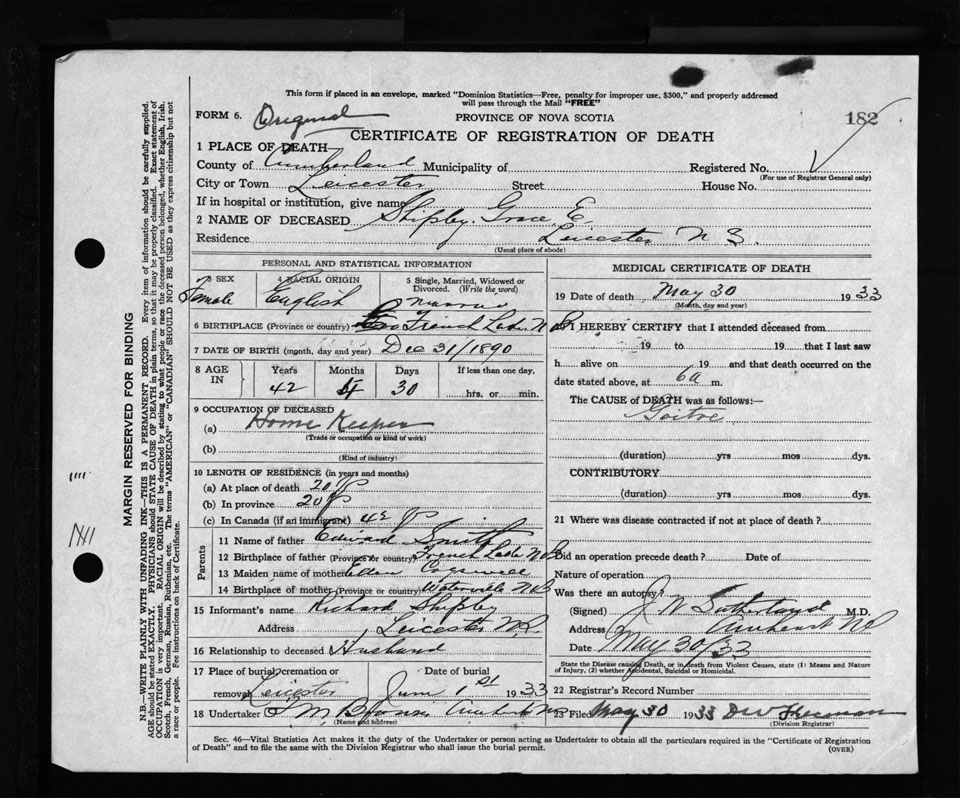 This form if placed in an envelope, marked "Dominion Statistics—Free, penalty for improper use, $300," and properly addressed
will pass through the Mail "FREE"
FORM 6. Original PROVINCE OF NOVA SCOTIA 182
CERTIFICATE OF REGISTRATION OF DEATH
1 PLACE OF DEATH—
County of Cumberland Municipality of Registered No.
(For use of Registrar General only)
City or Town Leicester Street House No.
If in hospital or institution, give name
2 NAME OF DECEASED Shipley. Grace E.
Residence Leicester N S.
(Usual place of abode)
PERSONAL AND STATISTICAL INFORMATION
3 SEX 4 RACIAL ORIGIN 5 Single, Married, Widowed or Divorced. (Write the word)
Female English
6 BIRTHPLACE (Province or country) French Lake N B
7 DATE OF BIRTH (month, day and year) Dec 31/1890
8 AGE IN Years Months Days If less than one day,
42 4 30 hrs. or min.
9 OCCUPATION OF DECEASED
(a) Home Keeper
(Trade or occupation or kind of work)
(b)
(Kind of industry)
10 LENGTH OF RESIDENCE (in years and months)
(a) At place of death 20
(b) In province 20
(c) In Canada (if an immigrant) 42
Parents
11 Name of father Edward Smith
12 Birthplace of father (Province or country) French Lake N B
13 Maiden name of mother Cogswell
14 Birthplace of mother (Province or country) Waterville N B
15 Informant's name Richard Shipley
Address Leicester N.S.
16 Relationship to deceased Husband
17 Place of burial, cremation or removal Date of burial
Leicester June 1st 1933
18 Undertaker Amherst NS
(Name and address)
MEDICAL CERTIFICATE OF DEATH
19 Date of death May 30 1933
(Month, day and year)
I HEREBY CERTIFY that I attended deceased from
19 to 19 that I last saw
h alive on 19 and that death occurred on the
date stated above, at 6a m.
The CAUSE of DEATH was as follows:—
Goitre
(duration) yrs mos dys.
CONTRIBUTORY
(duration) yrs mos dys.
21 Where was disease contracted if not at place of death?
Did an operation precede death? Date of
Nature of operation
Was there an autopsy?
(Signed) J. W Sutherland M.D.
Address Amherst NS
Date May 30/33
State the Disease causing Death, or in death from Violent Causes, state (1) Means and Nature
of Injury, (2) whether Accidental, Suicidal or Homicidal.
22 Registrar's Record Number
23 Filed May 30 1933
(Division Registrar)
Sec. 46—Vital Statistics Act makes it the duty of the Undertaker or person acting as Undertaker to obtain all the particulars required in the "Certificate of Registration
of Death" and to file the same with the Division Registrar who shall issue the burial permit.
(OVER)
MARGIN RESERVED FOR BINDING
N.B.—WRITE PLAINLY WITH UNFADING INK—THIS IS A PERMANENT RECORD. Every item of information should be carefully supplied.
AGE should be stated EXACTLY. PHYSICIANS should STATE CAUSE OF DEATH in plain terms, so that it may be properly classified. Exact statement of
OCCUPATION is very important. RACIAL ORIGIN will be described by stating to what people or race the deceased person belonged, whether English, Irish,
Scotch, French, German, Russian, Ruthenian, etc. The terms "AMERICAN" or "CANADIAN" SHOULD NOT BE USED as they express citizenship but not
a race or people. See instructions on back of Certificate.